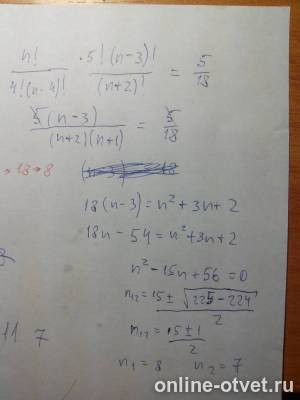 n! / 4!(n-4)! · 5!(n-3)! / (n+2)! = 5/18
5(n-3) / (n+2)(n+1) = 5/18
18
18(n-3) = n²+3n+2
18n - 54 = n²+3n+2
n² - 15n + 56 = 0
n₁₂ = 15 ± √225 - 224 / 2
n₁₂ = 15 ± 1 / 2
n₁ = 8 n₂ = 7
11 7
online-otvet.ru